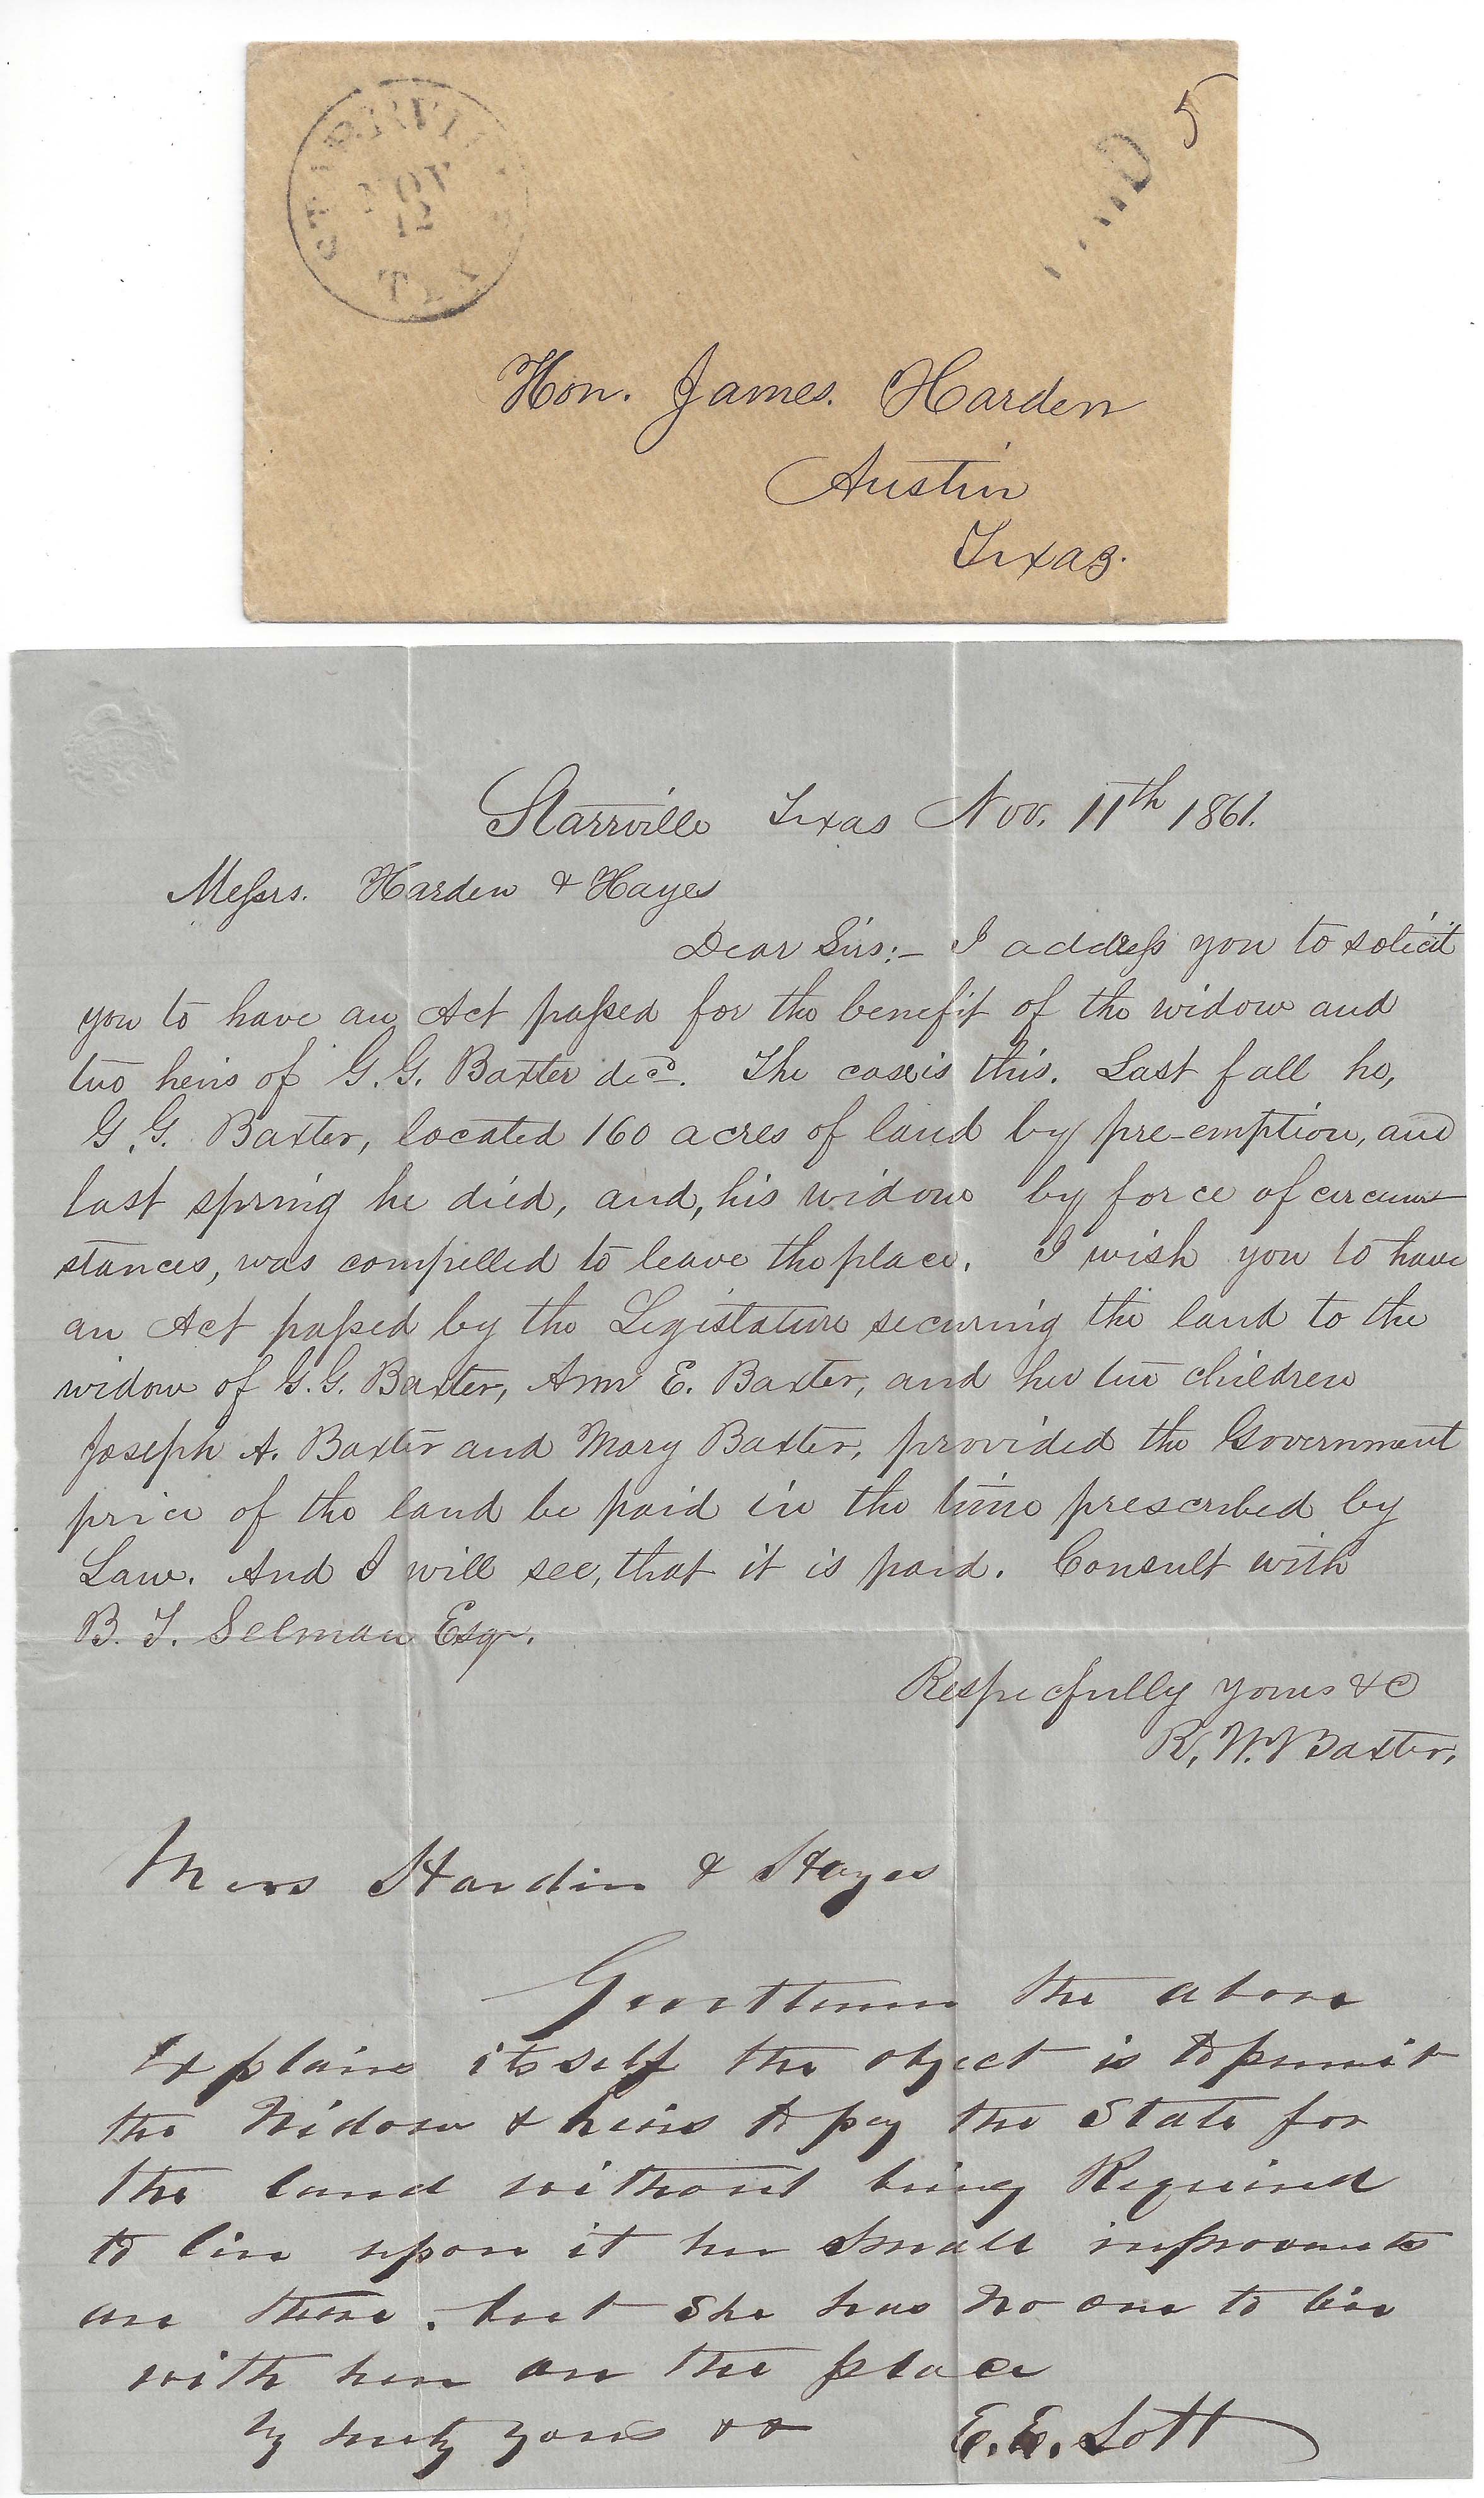 STARRVI
NOV
12
TEX
5
Hon. James. Harden
Austin
Texas.
Starrville Texas Nov. 11th 1861.
Messrs. Harden & Hayes
Dear Sirs:- I address you to solicit
you to have an Act passed for the benefit of the widow and
two heirs of G. G. Baxter decd. The case is this. Last fall he,
G. G. Baxter, located 160 acres of land by pre-emption, and
last spring he died, and, his widow by force of circum
stances, was compelled to leave the place. I wish you to have
an Act passed by the Legislature securing the land to the
widow of G. G. Baxter, Ann E. Baxter, and her two children
Joseph A. Baxter and Mary Baxter, provided the Government
price of the land be paid in the time prescribed by
Law. And I will see, that it is paid. Consult with
B. T. Selman Esqr.
Respecfully yours &C
R. W. Baxter,
Mers Hardin & Hays
Gentlemen the above
Explains itself the object is to permit
the Widow & heirs to pay the State for
the land without being Required
to live upon it her small improvements
are there. but she has no one to live
with her on the place
truly yours &&
E. E. Lott